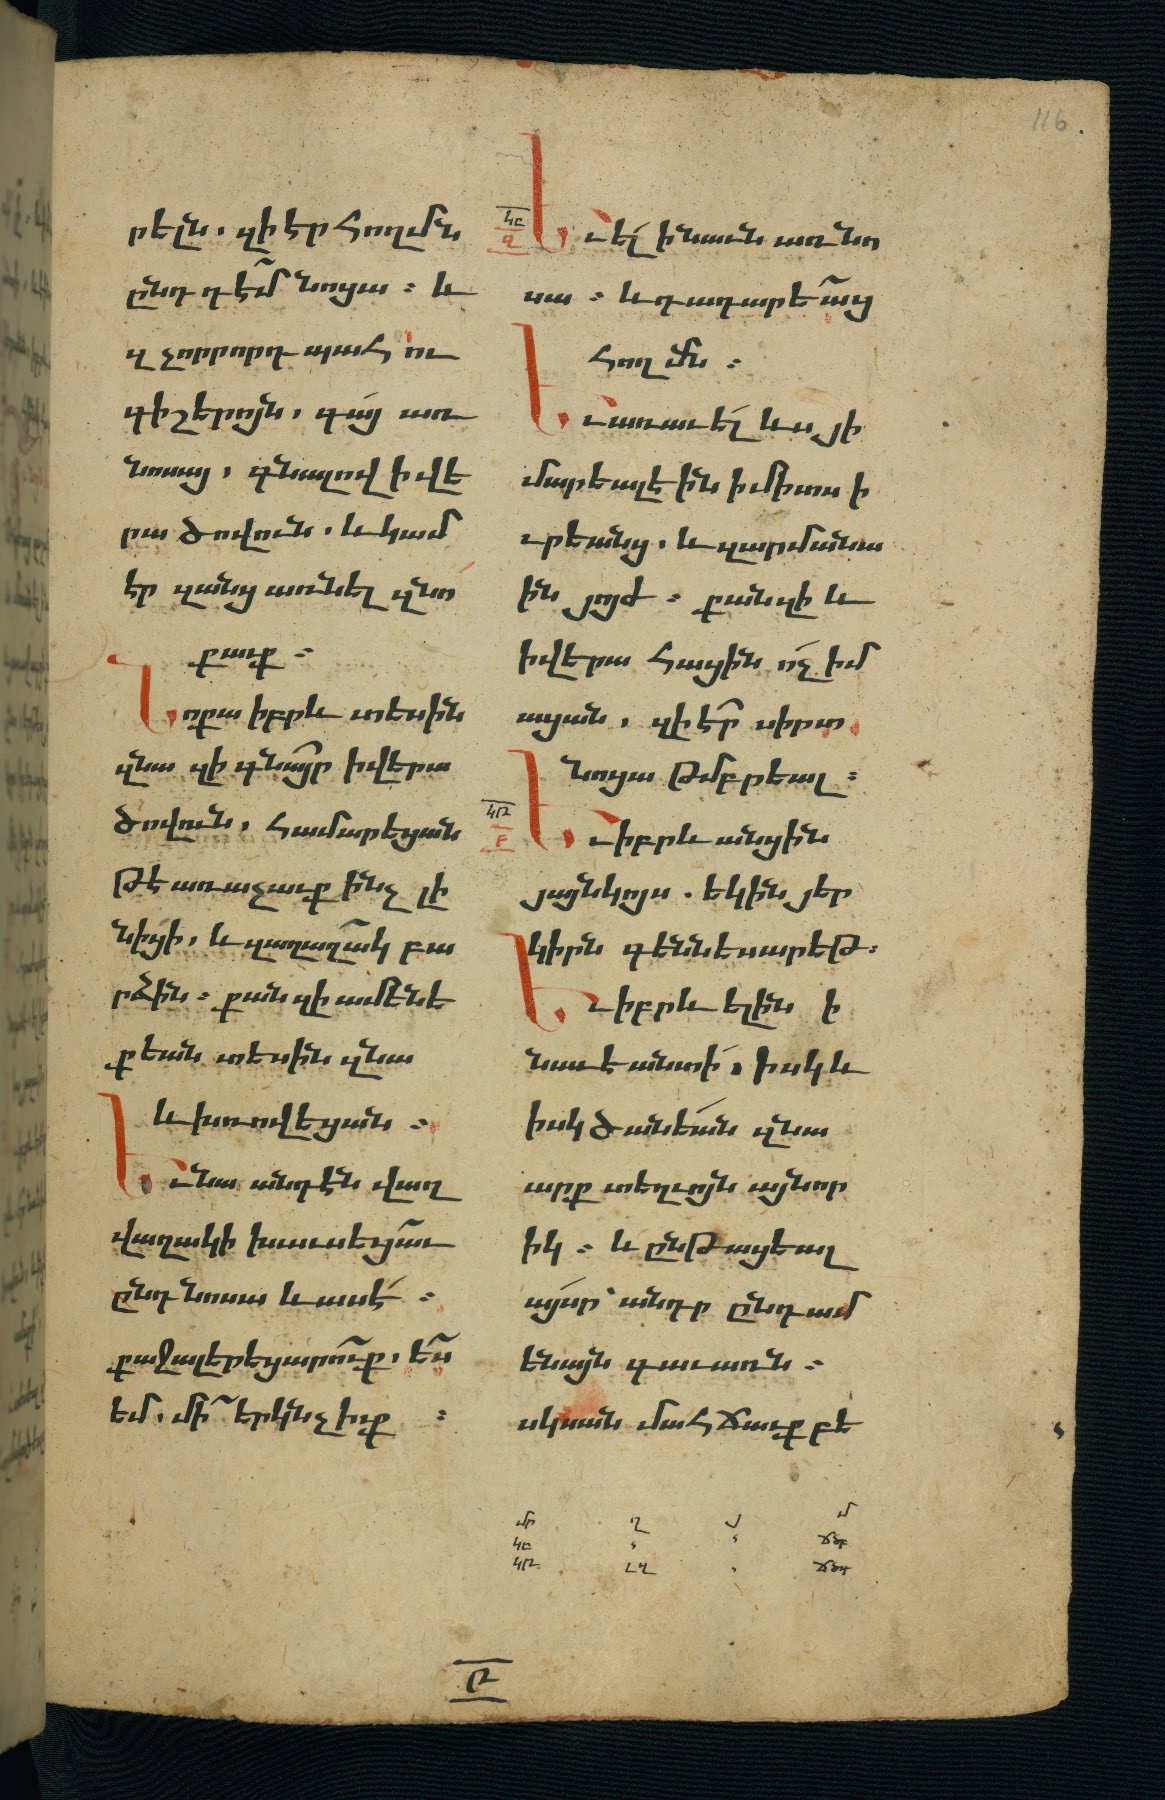 116
րելն. զի էր հողմն
ընդդէմ նոցա։ և
զչորրորդ պահու
գիշերոյն, գայ առ
նոսայ, գնալով ի վե
րա ծովուն. և կամ
էր զանց առնել զնո
քաւք։
Նոքա իբրև տեսին
զնա զի գնայր ի վերա
ծովուն, համարեցան
թե առաչաւք ինչ լի
նիցի, և զաղաղակ բա
րձին։ քանզի ամենե
քեան տեսին զնա
և խռովեցան։
Եւ նա անդէն վաղ
վաղակի խաւսեցաւ
ընդ նոսա և ասէ։
քաջալերեցարուք, ես
եմ, մի երկնչիք։
ԿԸ
Ղ
Եւ ել ի նաւն առ նո
սա։ և դադարեաց
հողմն։
Եւ առաւել ևս յի
մարեալ էին ի միտս ի
ւրեանց. և զարմանա
ին յոյժ։ քանզի և
ի վերա հացին ոչ իմ
ացան, զի էր սիրտ
նոցա թմբրեալ։
ԿԹ
Բ
Եւ իբրև անցին
յայնկոյս. եկին յեր
կիրն գեննեսարեթ։
Եւ իբրև ելին ի
նաւէ անտի, իսկ և
իսկ ծանեան զնա
արք տեղւոյն այնոր
իկ։ և ընթացեալ
այսր՝ անդր ընդ ամ
ենայն գաւառն։
սկսան մահճաւք բե
մր ղ յ մ
կը
կթ
Թ